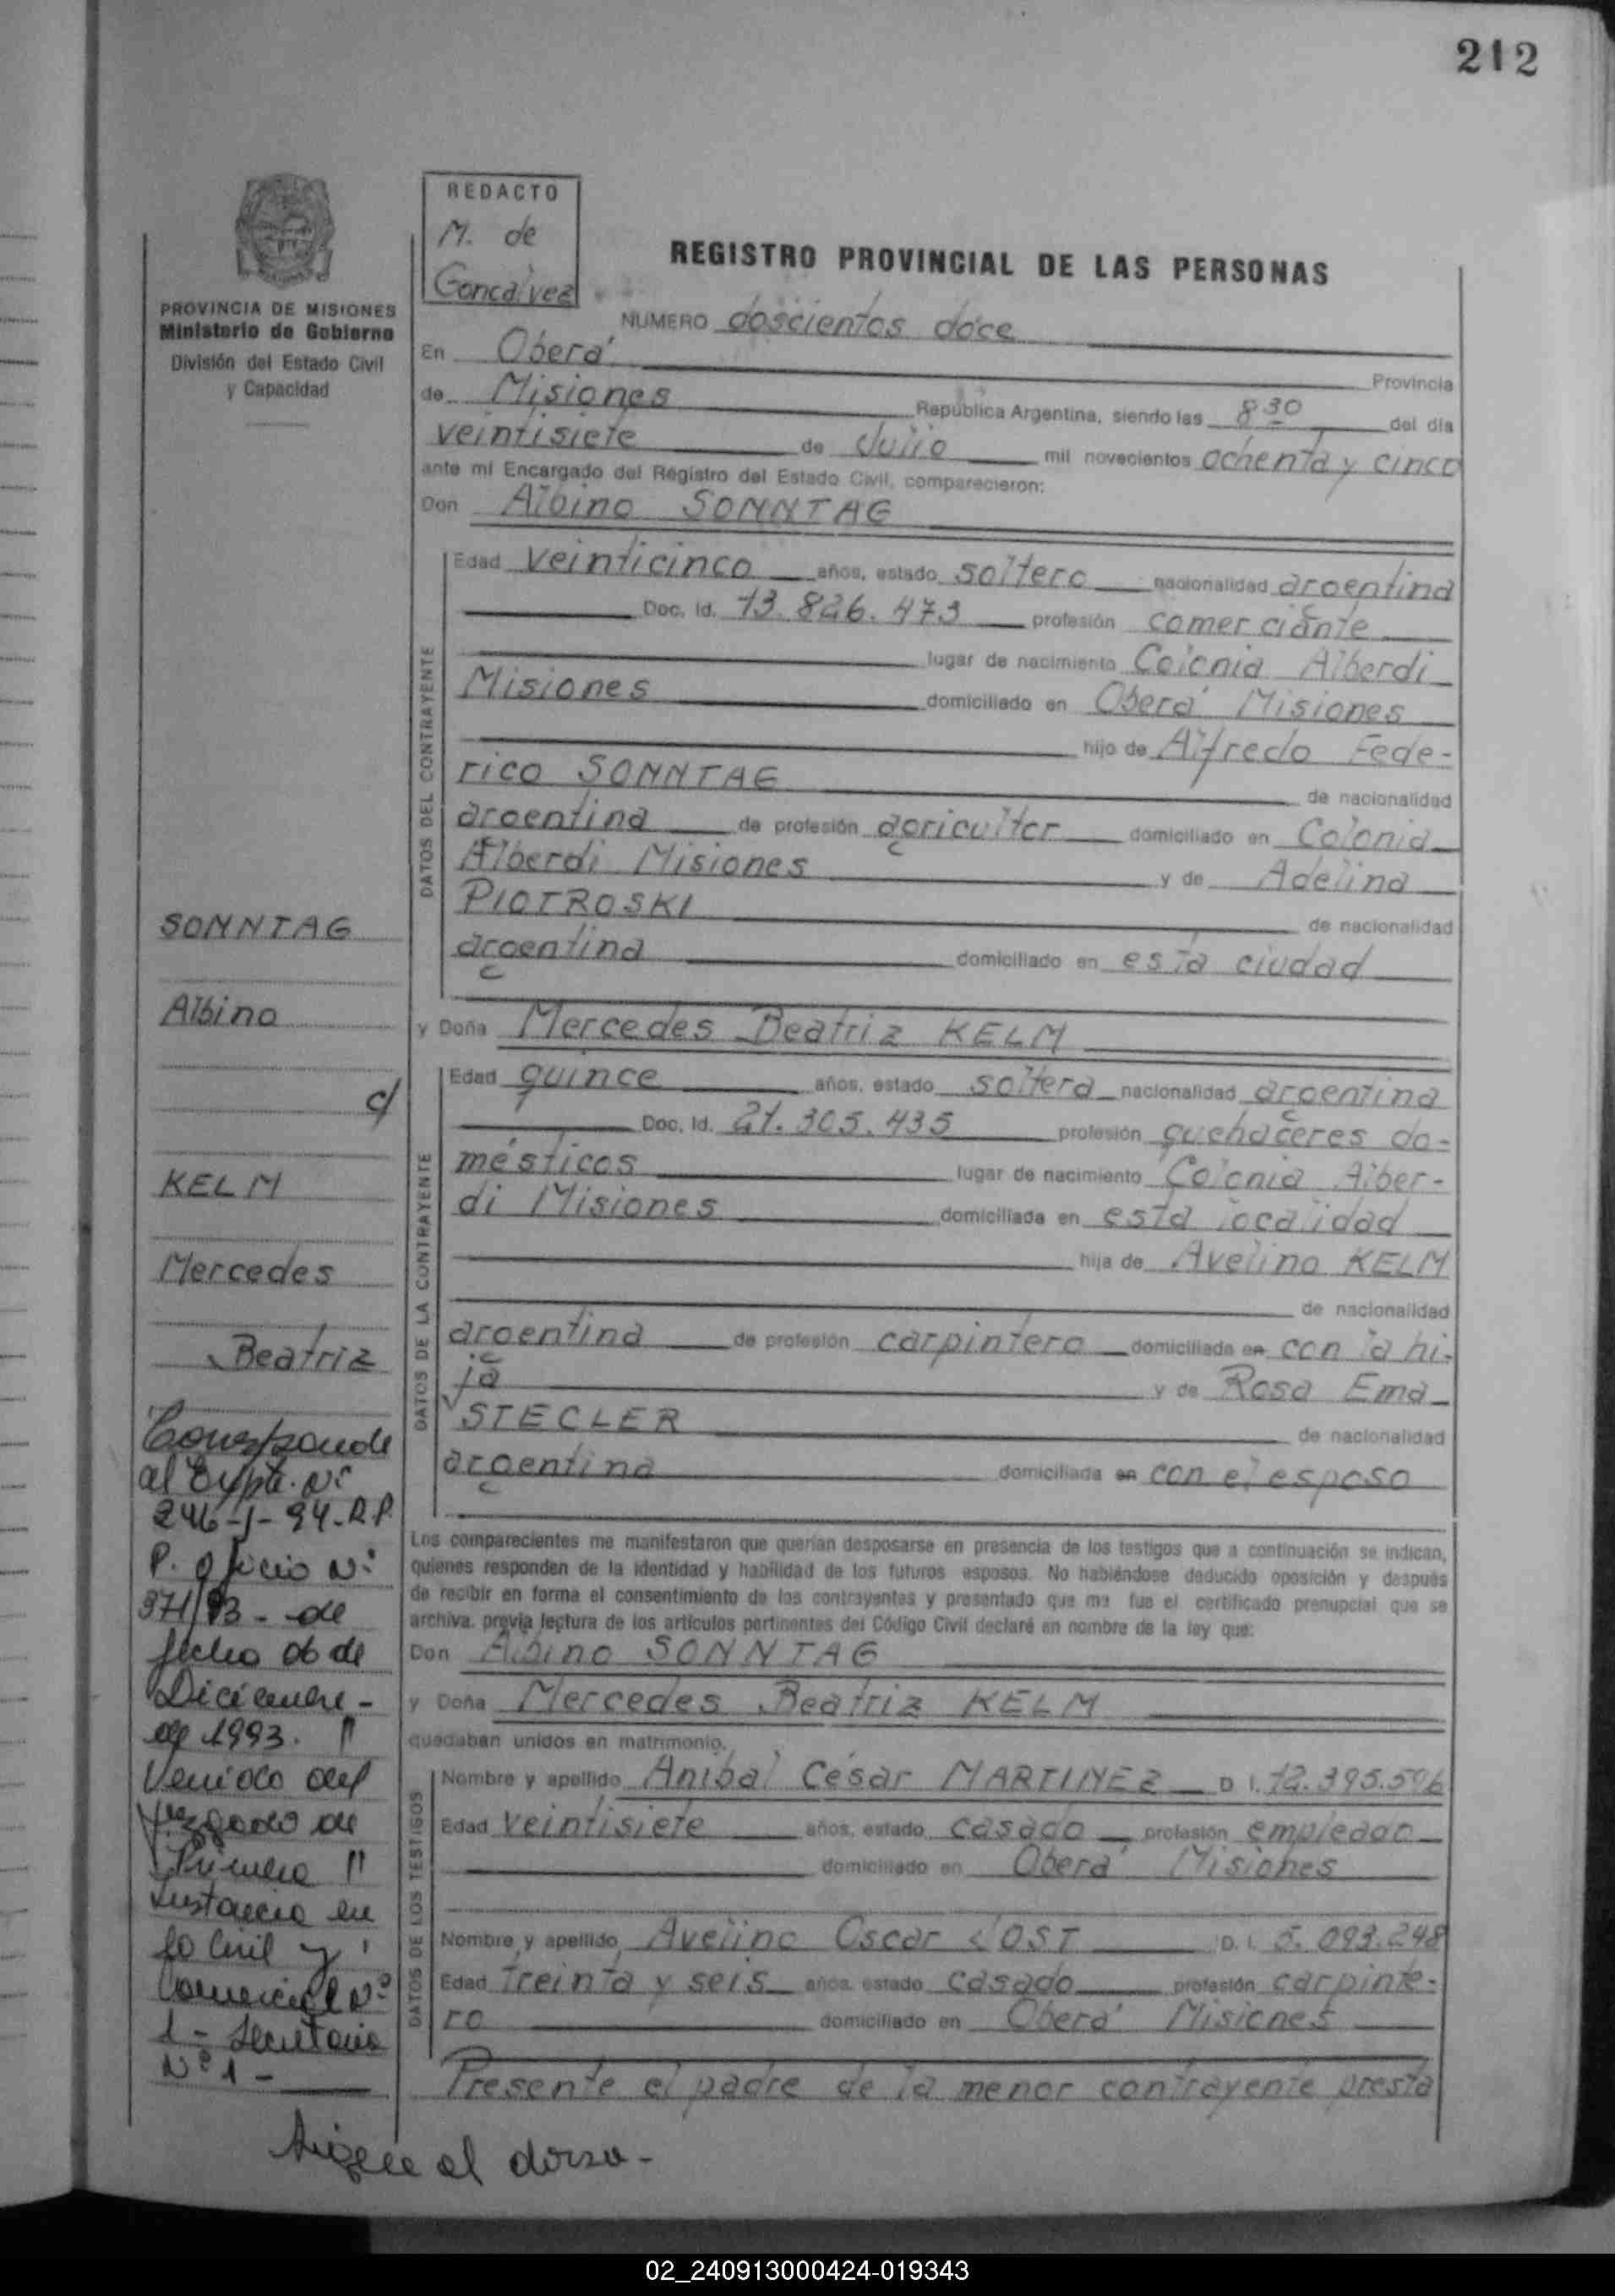 212
REDACTO
M. de
Goncalvez
REGISTRO PROVINCIAL DE LAS PERSONAS
PROVINCIA DE MISIONES
Ministerio de Gobierno
División del Estado Civil
y Capacidad
NUMERO doscientos doce
En Oberá Provincia
de Misiones República Argentina, siendo las 8 30 del día
veintisiete de Julio mil novecientos ochenta y cinco
ante mi Encargado del Registro del Estado Civil, comparecieron:
Don Albino SONNTAG
DATOS DEL CONTRAYENTE
Edad veinticinco años, estado soltero nacionalidad argentina
Doc. Id. 13.826.473 profesión comerciante
lugar de nacimiento Colonia Alberdi
Misiones domiciliado en Oberá Misiones
hijo de Alfredo Fede-
rico SONNTAG de nacionalidad
argentina de profesión agricultor domiciliado en Colonia
Alberdi Misiones y de Adelina
PIOTROSKI de nacionalidad
argentina domiciliado en esta ciudad
y Doña Mercedes Beatriz KELM
DATOS DE LA CONTRAYENTE
Edad quince años, estado soltera nacionalidad argentina
Doc. Id. 21.305.435 profesión quehaceres do-
mésticos lugar de nacimiento Colonia Alber-
di Misiones domiciliada en esta localidad
hija de Avelino KELM
de nacionalidad
argentina de profesión carpintero domiciliada en con la hi-
ja y de Rosa Ema
STECLER de nacionalidad
argentina domiciliada en con el esposo
Los comparecientes me manifestaron que querían desposarse en presencia de los testigos que a continuación se indican,
quienes responden de la identidad y habilidad de los futuros esposos. No habiéndose deducido oposición y después
de recibir en forma el consentimiento de los contrayentes y presentado que me fue el certificado prenupcial que se
archiva, previa lectura de los artículos pertinentes del Código Civil declaré en nombre de la ley que:
Don Albino SONNTAG
y Doña Mercedes Beatriz KELM
quedaban unidos en matrimonio.
DATOS DE LOS TESTIGOS
Nombre y apellido Anibal César MARTINEZ D I. 12.395.596
Edad veintisiete años, estado casado profesión empleado
domiciliado en Oberá Misiones
Nombre y apellido Avelino Oscar LOST D. I. 5.093.248
Edad treinta y seis años, estado casado profesión carpinte-
ro domiciliado en Oberá Misiones
Presente el padre de la menor contrayente presta
SONNTAG
Albino
c/
KELM
Mercedes
Beatriz
Corresponde
al Expte. Nº
246-J-94-R.P.
P. Oficio Nº
371/93- de
fecha 06 de
Diciembre -
de 1993. "
Venido del
Juzgado de
Primera "
Instancia en
lo Civil y
Comercial Nº
1- Secretaria
Nº 1-
Sigue al dorso-
02_240913000424-019343